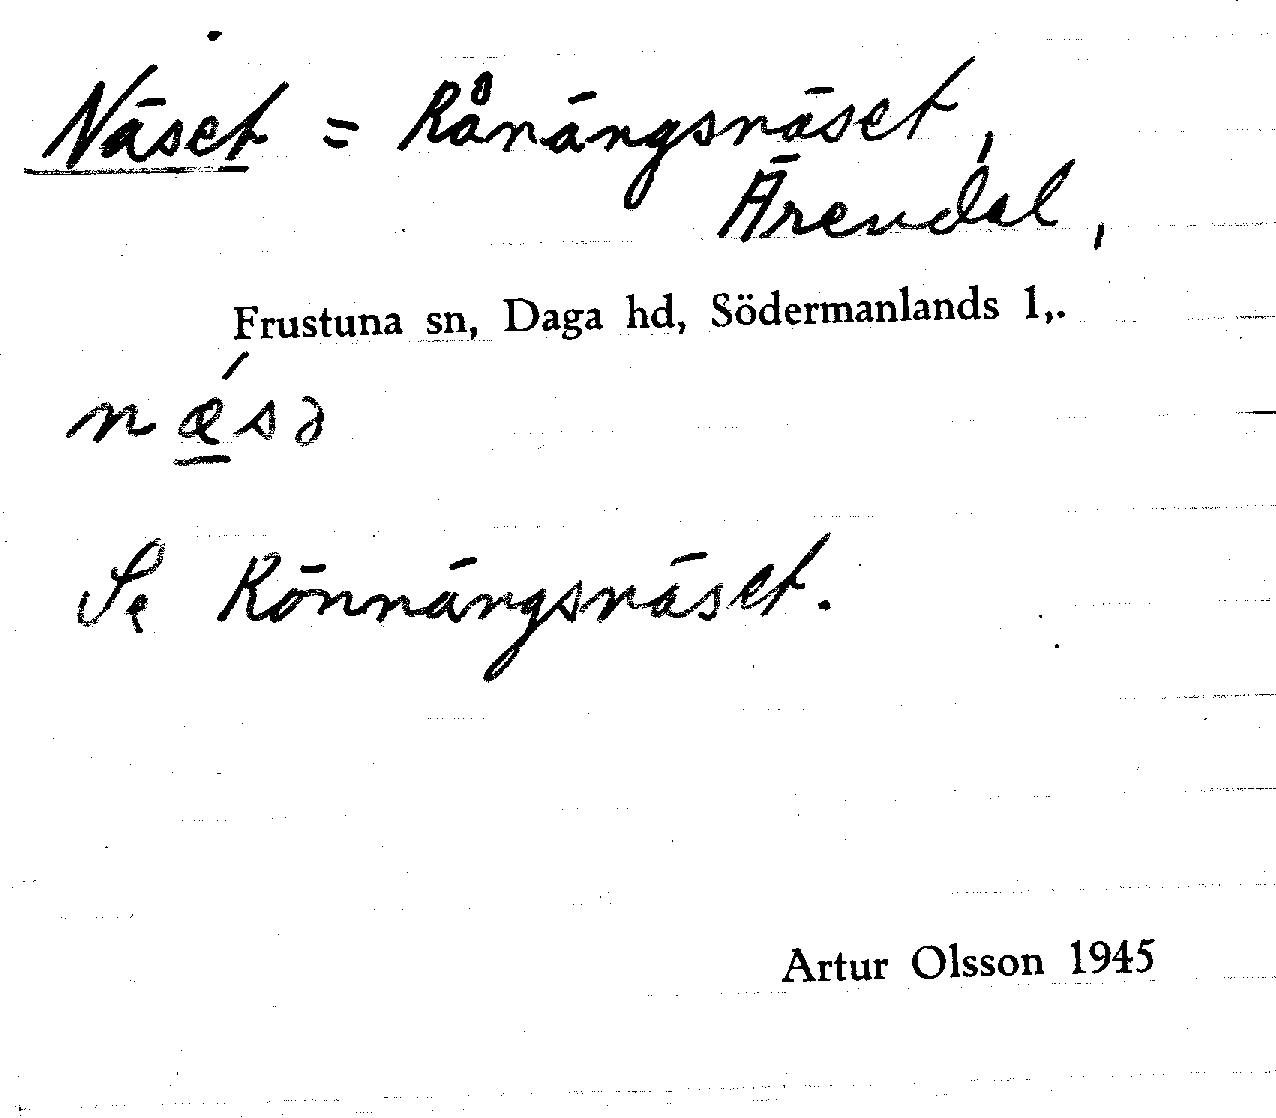 Näset = Rånängsnäset,
Ärendal,
Frustuna sn, Daga hd, Södermanlands l,.
nǽsə
Se Rönnängsnäset.
Artur Olsson 1945